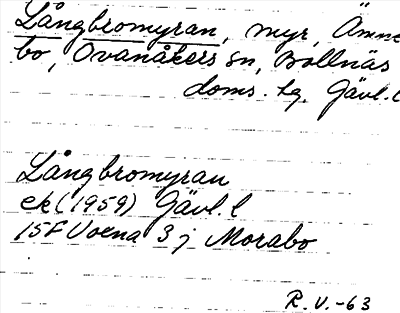 Långbromyran, myr, Ämne
bo, Ovanåkers sn, Bollnäs
doms. hg. Gävl. l
Långbromyran
ek (1959) Gävl. l
15F Voxna 3 j Morabo
R. V.-63